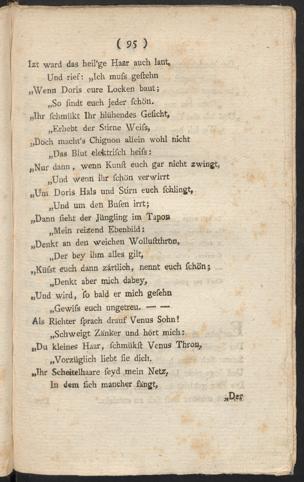 ( 95 )
Izt ward das heil'ge Haar auch laut,
Und rief: „Ich muſs geſtehn
„Wenn Doris eure Locken baut;
„So findt euch jeder ſchön.
„Ihr ſchmükt Ihr blühendes Geſicht,
„Erhebt der Stirne Weiſs,
„Doch macht's Chignon allein wohl nicht
„Das Blut elektriſch heiſs:
„Nur dann, wenn Kunſt euch gar nicht zwingt,
„Und wenn ihr ſchön verwirrt
„Um Doris Hals und Stirn euch ſchlingt,
„Und um den Buſen irrt;
„Dann ſieht der Jüngling im Tapon
„Mein reizend Ebenbild:
„Denkt an den weichen Wolluſtthron,
„Der bey ihm alles gilt,
„Küſst euch dann zärtlich, nennt euch ſchön;
„Denkt aber mich dabey,
„Und wird, ſo bald er mich geſehn
„Gewiſs euch ungetreu. — —
Als Richter ſprach drauf Venus Sohn!
„Schweigt Zänker und hört mich:
„Du kleines Haar, ſchmükſt Venus Thron,
„Vorzüglich liebt ſie dich.
„Ihr Scheitelhaare ſeyd mein Netz,
In dem ſich mancher fängt,
„Der